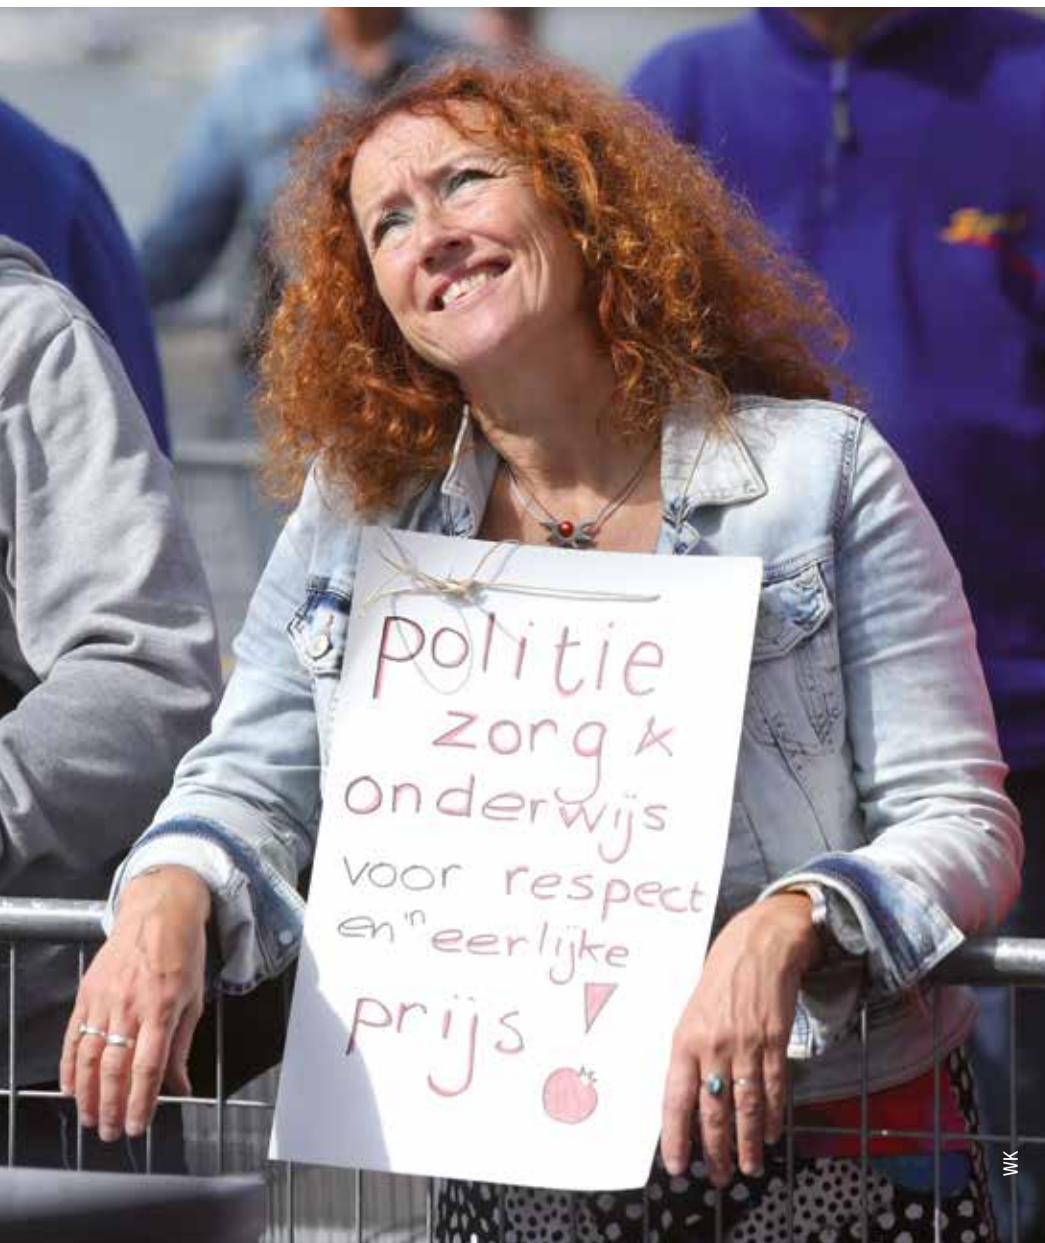 politie
zorg &
onderwijs
voor respect
en 'n eerlijke
prijs !
WK